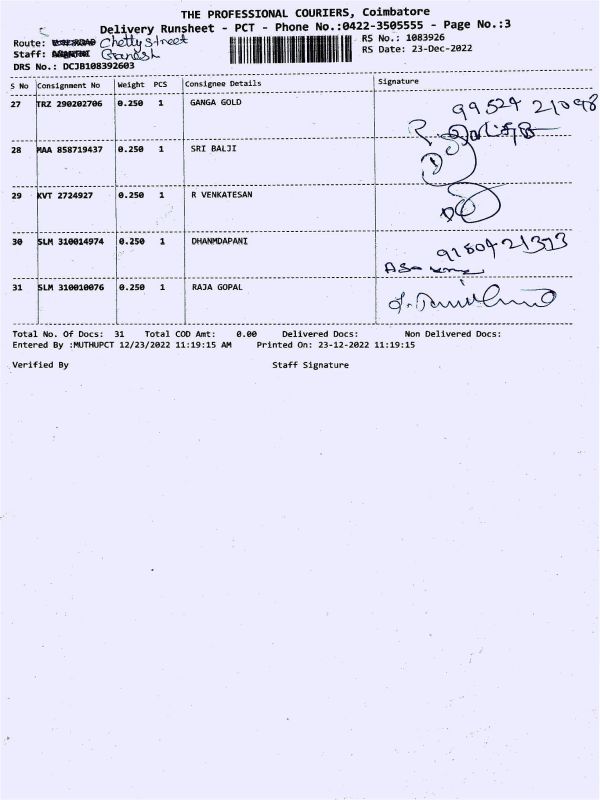 THE PROFESSIONAL COURIERS, Coimbatore
Delivery Runsheet - PCT - Phone No.:0422-3505555 - Page No.:3
Route: Chetty Street
RS No.: 1083926
Staff: Ganesh
RS Date: 23-Dec-2022
DRS No.: DCJB108392603
S No Consignment No Weight PCS Consignee Details Signature
27 TRZ 290202706 0.250 1 GANGA GOLD
99524 21098
28 MAA 858719437 0.250 1 SRI BALJI
29 KVT 2724927 0.250 1 R VENKATESAN
30 SLM 310014974 0.250 1 DHANMDAPANI
31 SLM 310010076 0.250 1 RAJA GOPAL
Total No. Of Docs: 31 Total COD Amt: 0.00 Delivered Docs: Non Delivered Docs:
Entered By :MUTHUPCT 12/23/2022 11:19:15 AM Printed On: 23-12-2022 11:19:15
Verified By Staff Signature